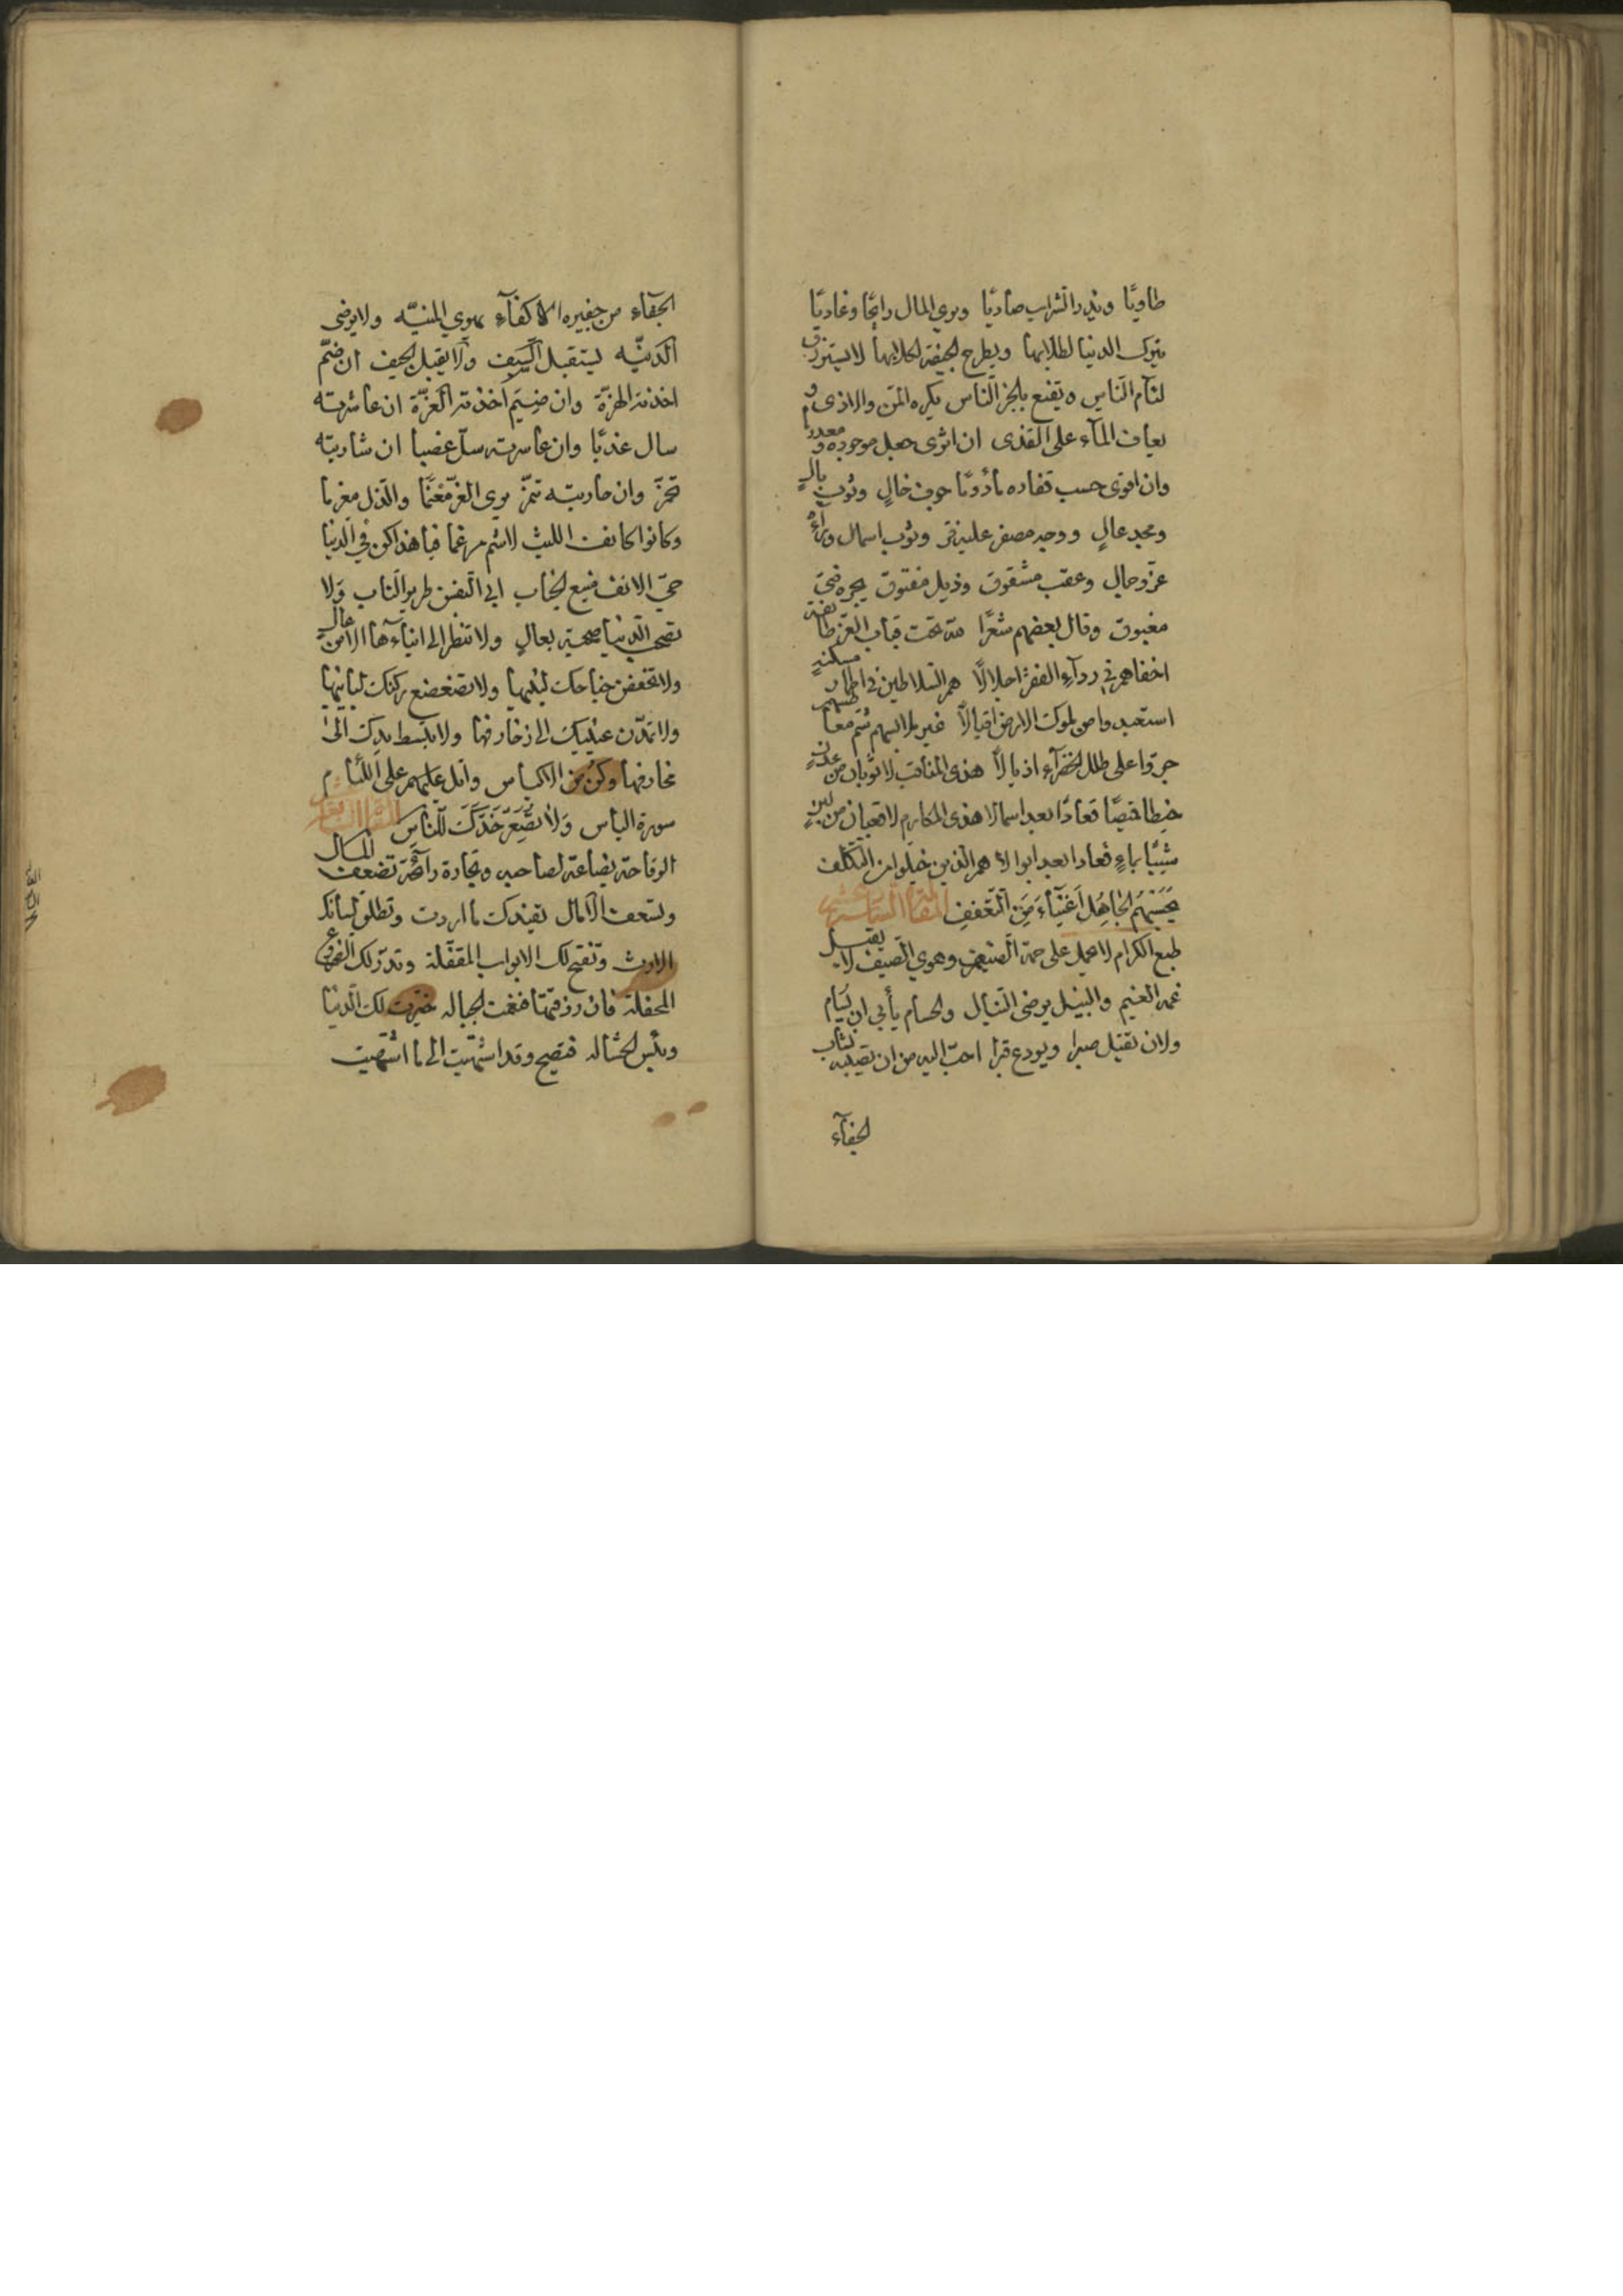 طاويًا ويذر الشراب صاديًا ويرى المال رائحًا وغاديًا
يترك الدنيا لطلابها ويطرح الجيفة لكلابها لا يسترزق
لئام الناس ويقنع بالخبز الناس يكره المن والاذى و
يعاف المآء على القذى ان اثرى جعل موجوده معدوما
وان اقوى حسب قفاره مأدومًا جوف خالٍ وثوب بالٍ
ومجد عالٍ ووجه مصفر عليه قر وثوب اسمال وراءه
عز وجمال وعقب مشقوق وذيل مفتوق يجره فتى
مغبوق وقال بعضهم شعرًا لله تحت قباب العز طائفة
اخفاهم في ردآء الفقر اجلالًا هم السلاطين في اطمار مسكنة
استعبدوا من ملوك الارض اقيالًا غبر ملابسهم شم معاطسهم
جروا على طلل الخضرآء اذيالًا هذى المناقب لا ثوبان من عدن
خيطا قميصًا فعادا بعد اسمالا هذى المكارم لا قعبان من لبن
شيبا بماءٍ فعادا بعد ابوالا هم الذين خلوا من التكلف
يَحْسَبُهُمُ الجَاهِلُ اَغْنِيَآءَ مِنَ التَّعَفُّفِ
طبع الكرام لا يحمل على حمة الضيم وهوى الصيف لا يقبل
غمة الغيم والنبيل يرضى النبال والحسام يأبى ان يسام
ولان يقتل صبرا ويودع قبرا احب اليه من ان تصيبه نشاب
الجفآء
الجفآء من جفيرة الاكفآء يهوى المنيّه ولا يرضى
الدنيّه يستقبل السيف ولا يقبل الحيف ان ضم
اخذته الهزة وان ضيم اخذته العزة ان عاشرته
سال عذبًا وان عاسرته سل عضبا ان شاربته
تخمر وان حاربته تنمر يرى العز مغنمًا والذل مغرما
وكانوا كانف الليث لا يشم مرغما فيا هذا كن في الدنيا
حمي الانف منيع الجناب ابي النفس طرير الناب ولا
تصحب الدنيا صحبة بعال ولا تنظر الى ابنآءها الا من عال
ولا تخفض جناحك لبنيها ولا تضعضع ركنك لبانيها
ولا تمدن عينيك الى زخارفها ولا تبسط يدك الى
مخارفها وكن من الاكياس واتل عليهم على اللئام
سورة الياس ولا تصعر خدك للناس
الوقاحة بضاعة لصاحبه وتجارة رابحة تضعف المال
وتسعف الآمال تفيدك ما اردت وتطلق لسانك
وتفتح لك الابواب المقفلة وتدر لك الضروع
المحفلة فان رزقتها فنعمت الجباله خيرت لك الدنيا
وبئس الحثاله فتصيح وقد اشتهيت الى ما اشتهيت